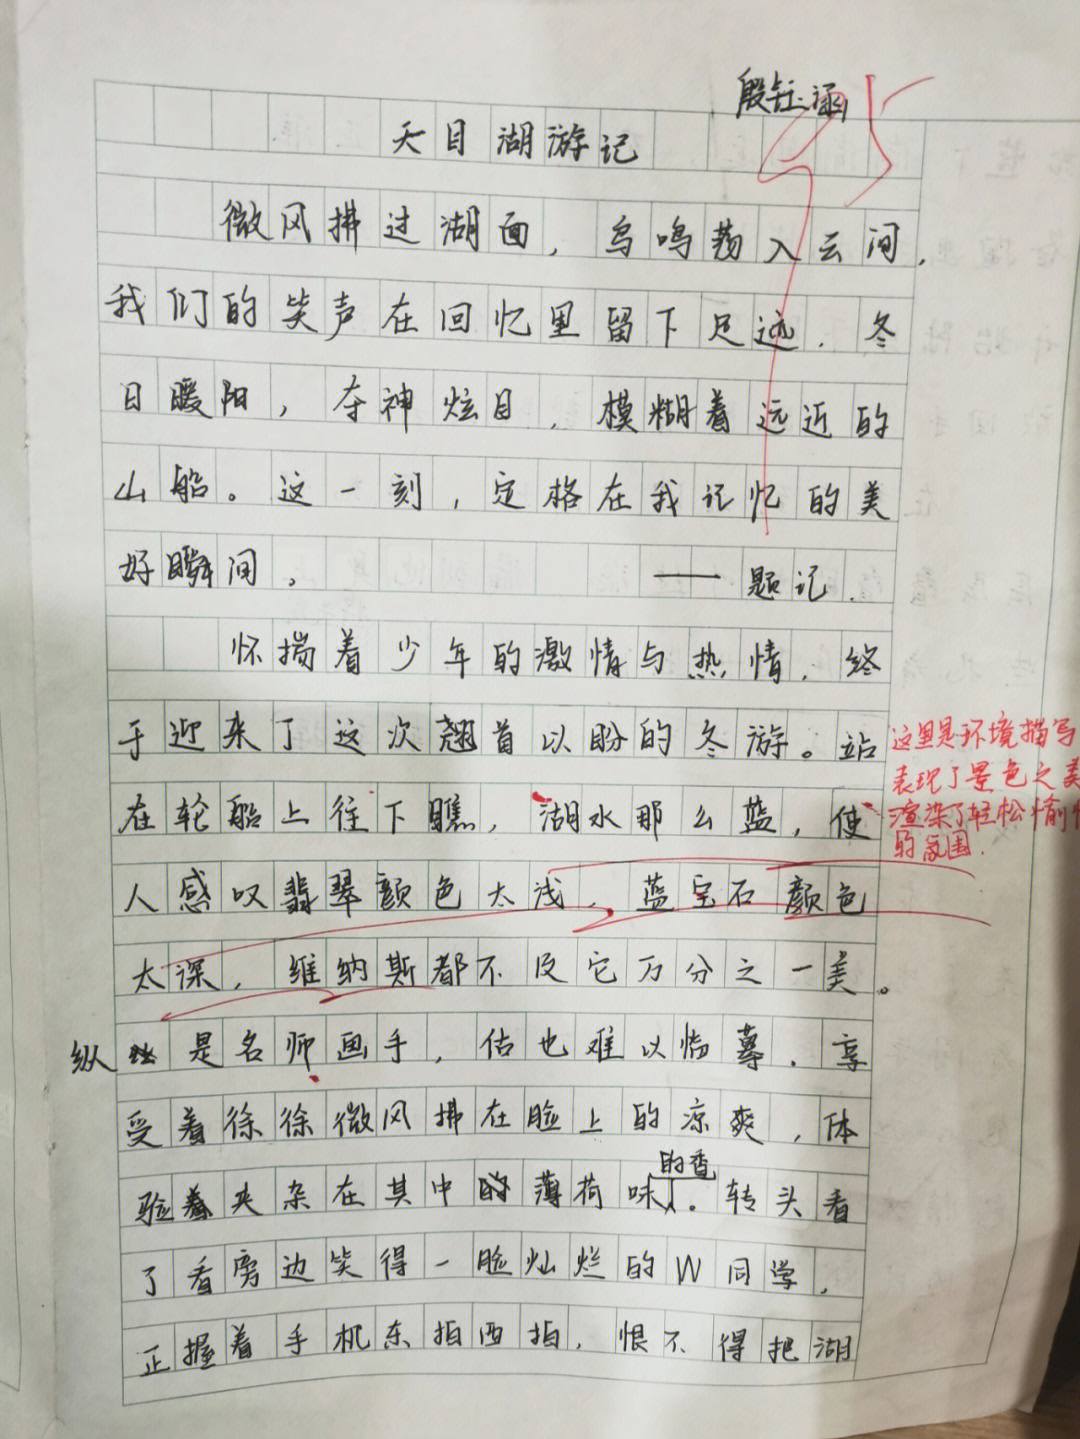 殷钰涵
95
天目湖游记
微风拂过湖面，鸟鸣荡入云间，
我们的笑声在回忆里留下足迹．冬
日暖阳，夺神炫目，模糊着远近的
山船。这一刻，定格在我记忆的美
好瞬间。 ——题记．
怀揣着少年的激情与热情，终
于迎来了这次翘首以盼的冬游。站
在轮船上往下瞧，湖水那么蓝，使
人感叹翡翠颜色太浅，蓝宝石颜色
太深，维纳斯都不及它万分之一美。
纵是名师画手，估也难以临摹．享
受着徐徐微风拂在脸上的凉爽，体
验着夹杂在其中的薄荷味的香。转头看
了看旁边笑得一脸灿烂的W同学，
正握着手机东拍西拍，恨不得把湖
这里是环境描写
表现了景色之美
渲染了轻松愉
的氛围．